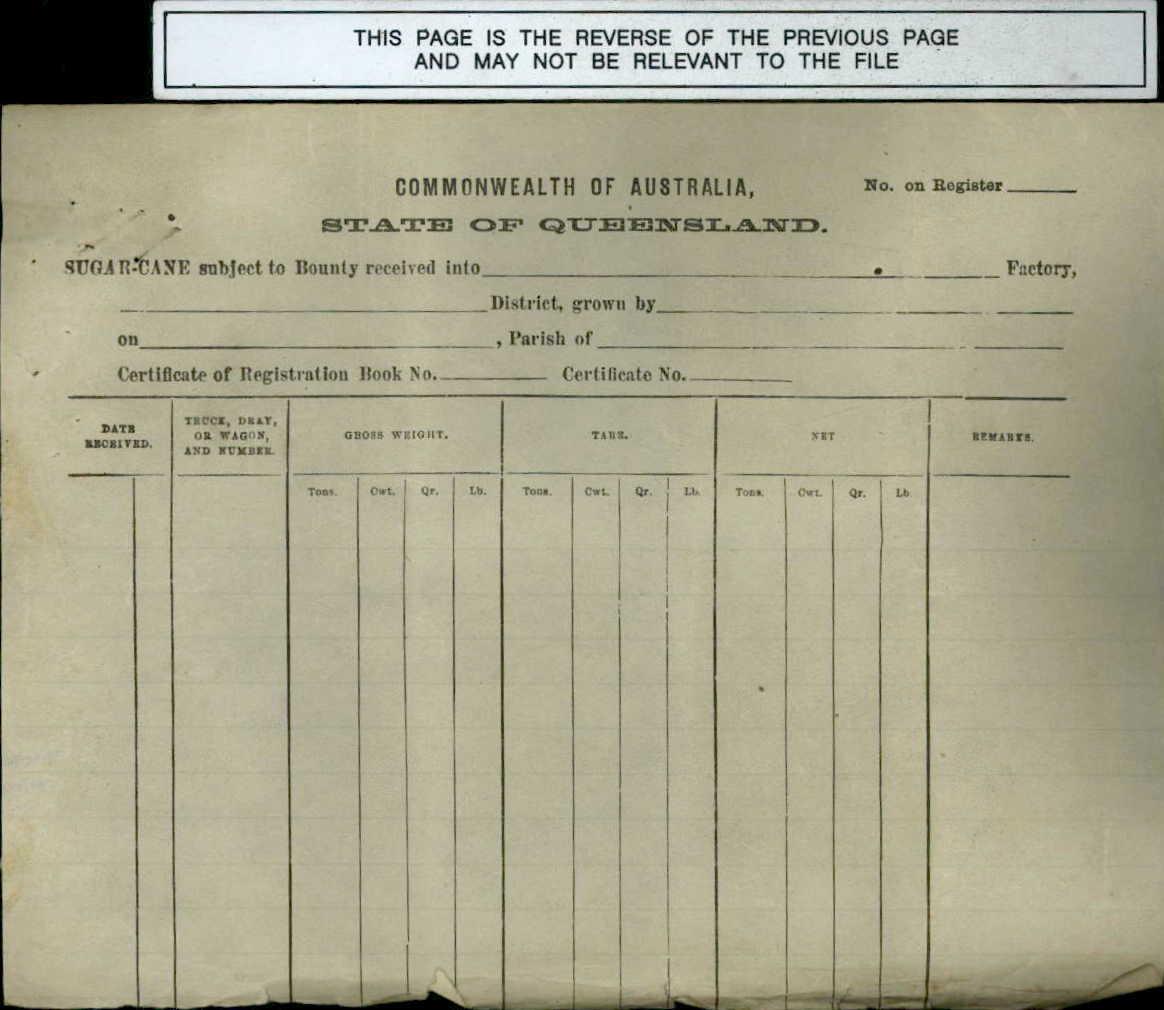 THIS PAGE IS THE REVERSE OF THE PREVIOUS PAGE
AND MAY NOT BE RELEVANT TO THE FILE
COMMONWEALTH OF AUSTRALIA,
No. on Register
STATE OF QUEENSLAND.
SUGAR-CANE subject to Bounty received into Factory,
District, grown by
on , Parish of
Certificate of Registration Book No. Certificate No.
DATE
RECEIVED.
TRUCK, DRAY,
OR WAGON,
AND NUMBER.
GROSS WEIGHT.
TARE.
NET
REMARKS.
Tons. Cwt. Qr. Lb. Tons. Cwt. Qr. Lb. Tons. Cwt. Qr. Lb